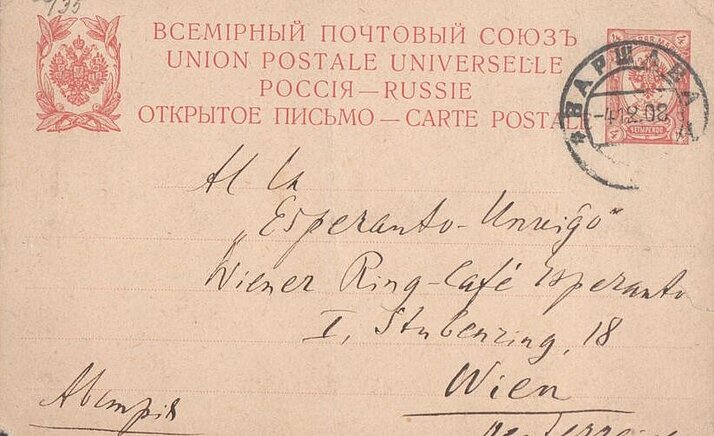 935
ВСЕМІРНЫЙ ПОЧТОВЫЙ СОЮЗЪ
UNION POSTALE UNIVERSELLE
РОССІЯ — RUSSIE
ОТКРЫТОЕ ПИСЬМО — CARTE POSTALE
ВАРШАВА
-4.12.08
4 4
ЧЕТЫРЕ КОП.
4 4
Al la
„Esperanto-Unuiĝo"
Wiener Ring-Café Esperanto
I, Stubenring, 18
Wien
Австрія
Oesterreich